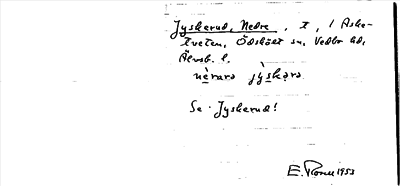 Jyskerud, Nedre, t, i Aske-
tveten, Ödskölt sn, Vedbo hd,
Älvsb. l.
nèrara jỳskəra
Se Jyskerud!
E. 1953